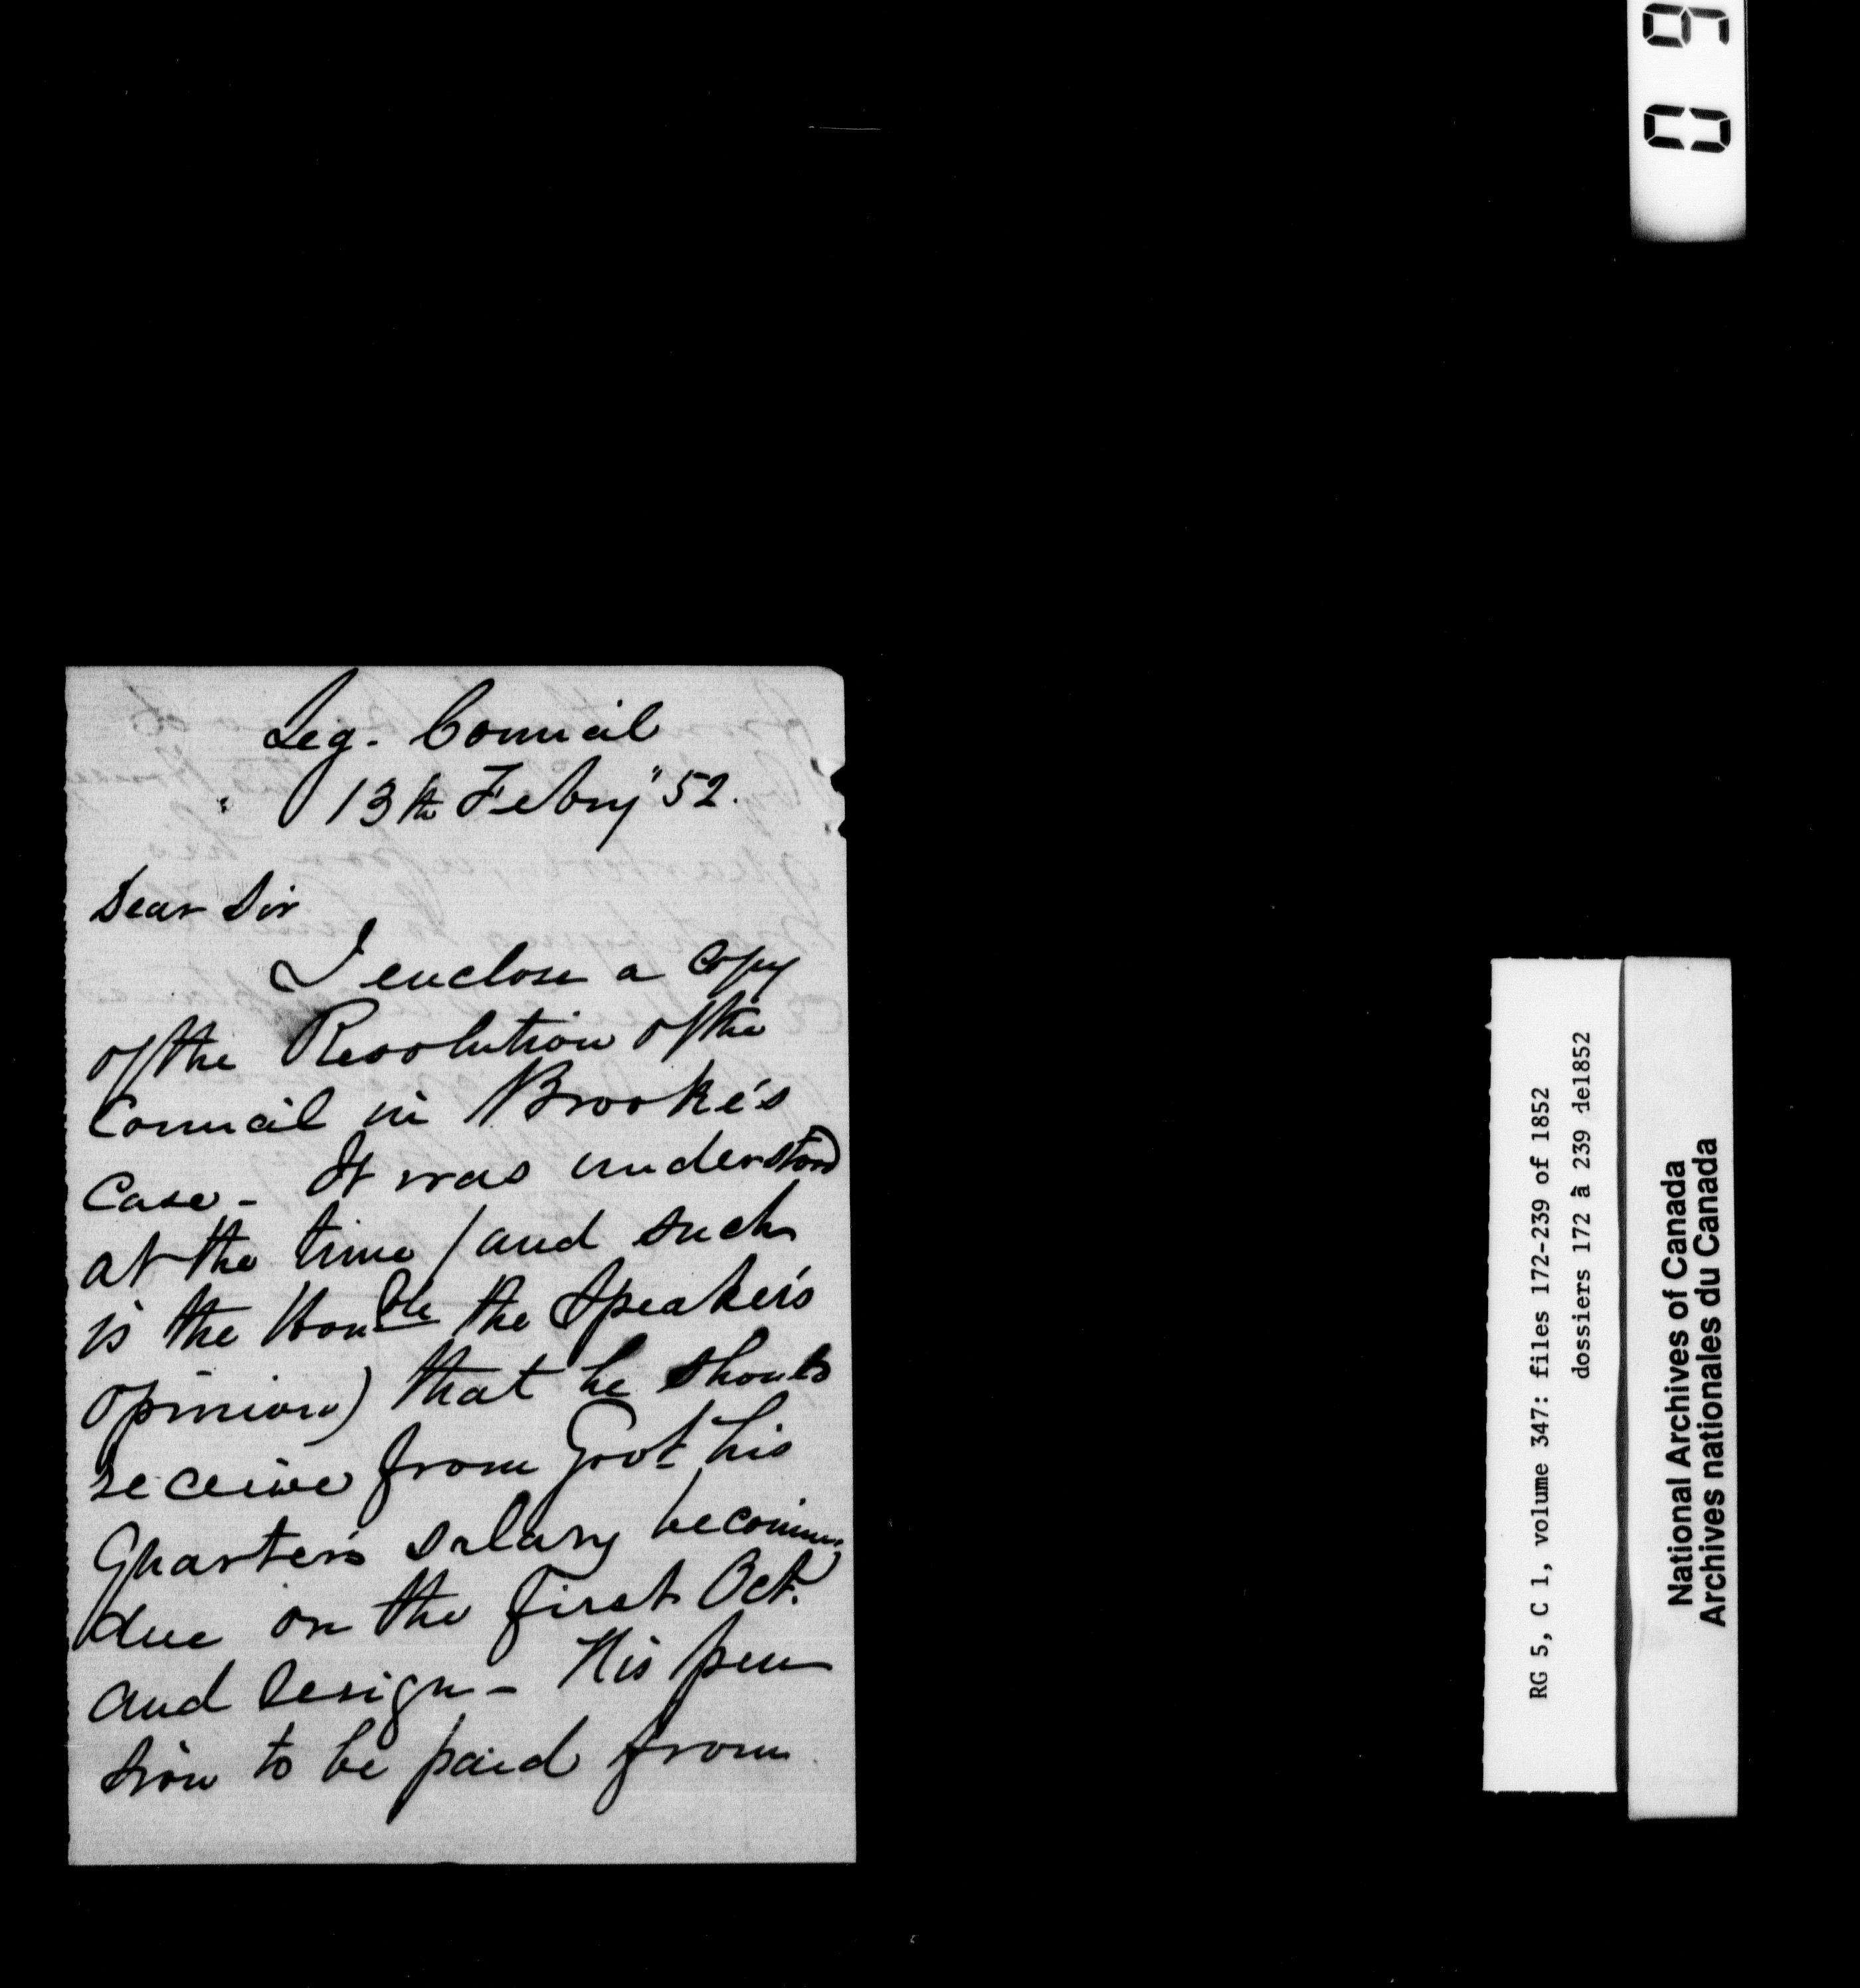 Leg. Council
13th Febry "52.
Dear Sir
I enclose a copy
of the Resolution of the
Council in Brooke's
Case - It was understood
at the time (and such
is the Honble the Speaker's
opinion) that he should
receive from Govt his
Quarter's salary becoming
due on the first Oct.
and resign - His pen
sion to be paid from
09
RG 5, C 1, volume 347: files 172-239 of 1852
dossiers 172 à 239 de1852
National Archives of Canada
Archives nationales du Canada